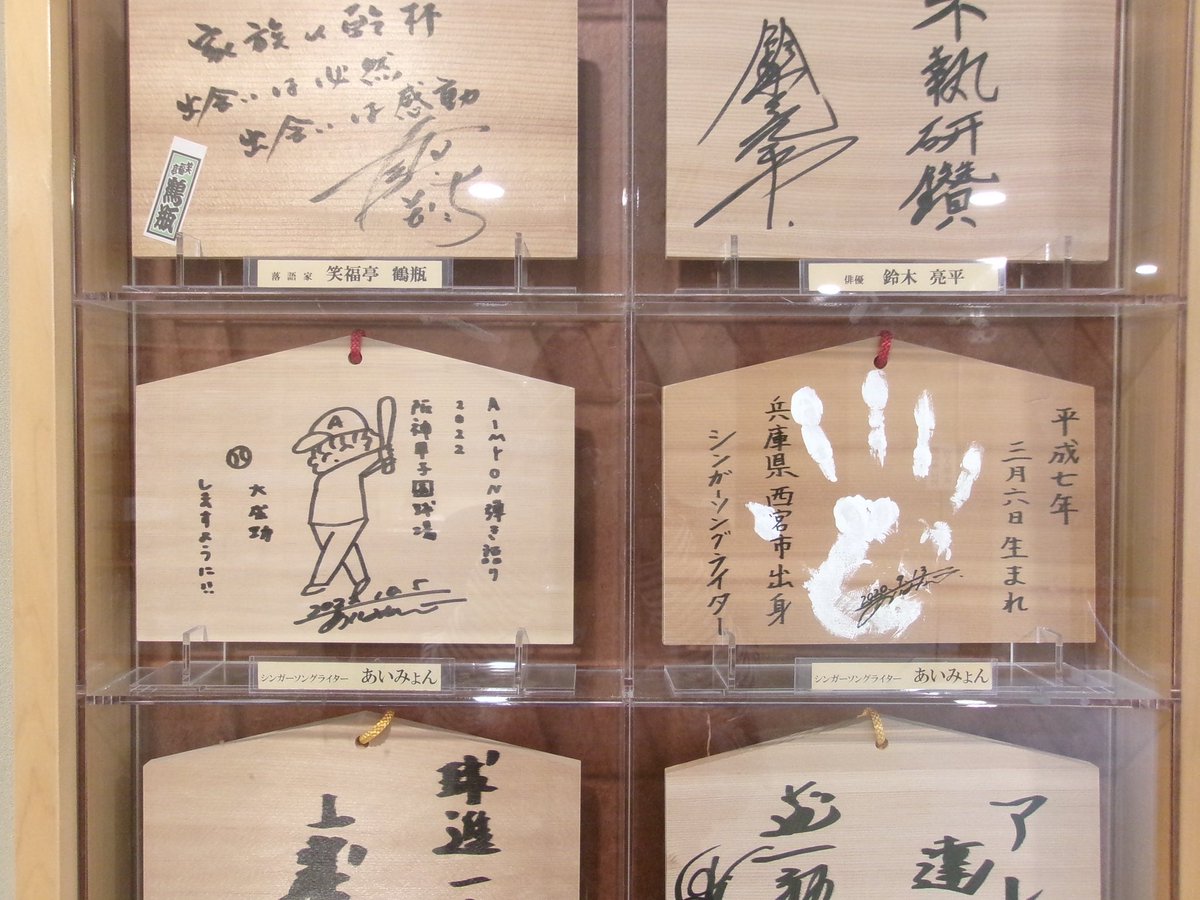 家族に乾杯
出会いは必然
出会いは感動
笑福亭
鶴瓶
落語家 笑福亭 鶴瓶
不執研鑽
俳優 鈴木 亮平
AimyoN弾き語り
2022
阪神甲子園球場
A
大成功
しますように!!
シンガーソングライター あいみょん
平成七年
三月六日生まれ
兵庫県西宮市出身
シンガーソングライター
2020
シンガーソングライター あいみょん
球進一
上
ア
達